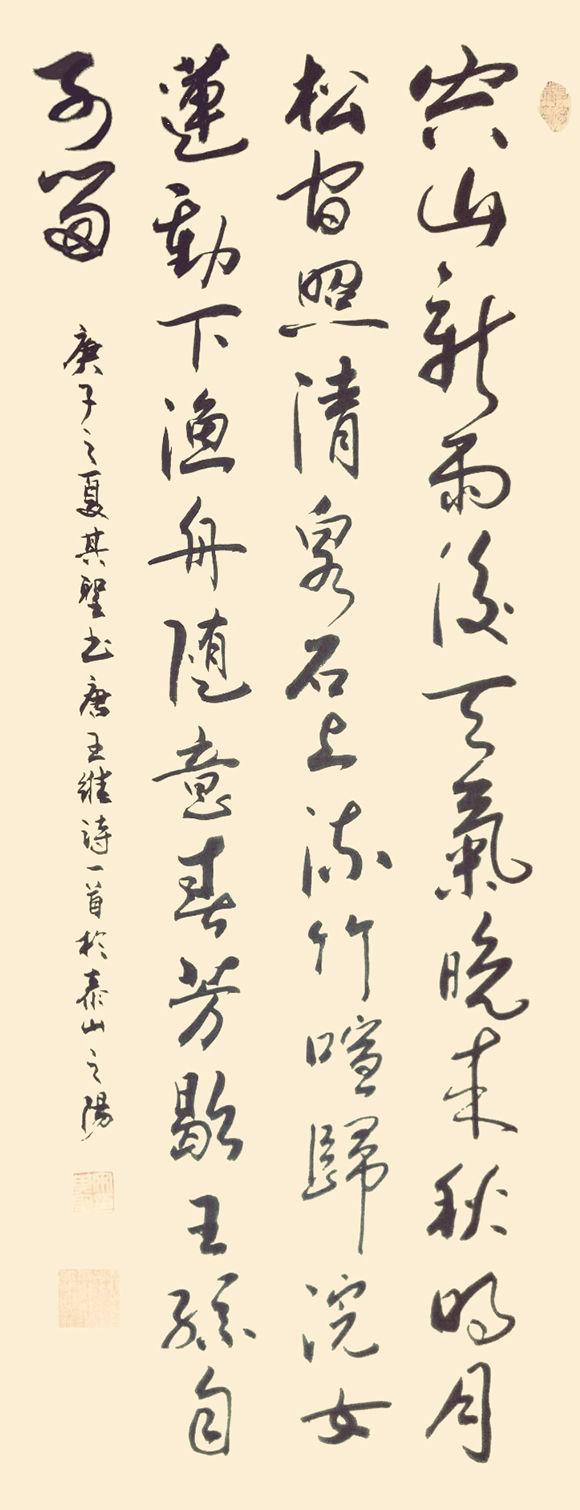 空山新雨後天氣晚来秋明月
松間照清泉石上流竹喧歸浣女
蓮動下漁舟随意春芳歇王孫自
可留
庚子之夏其書唐王維詩一首於泰山之陽